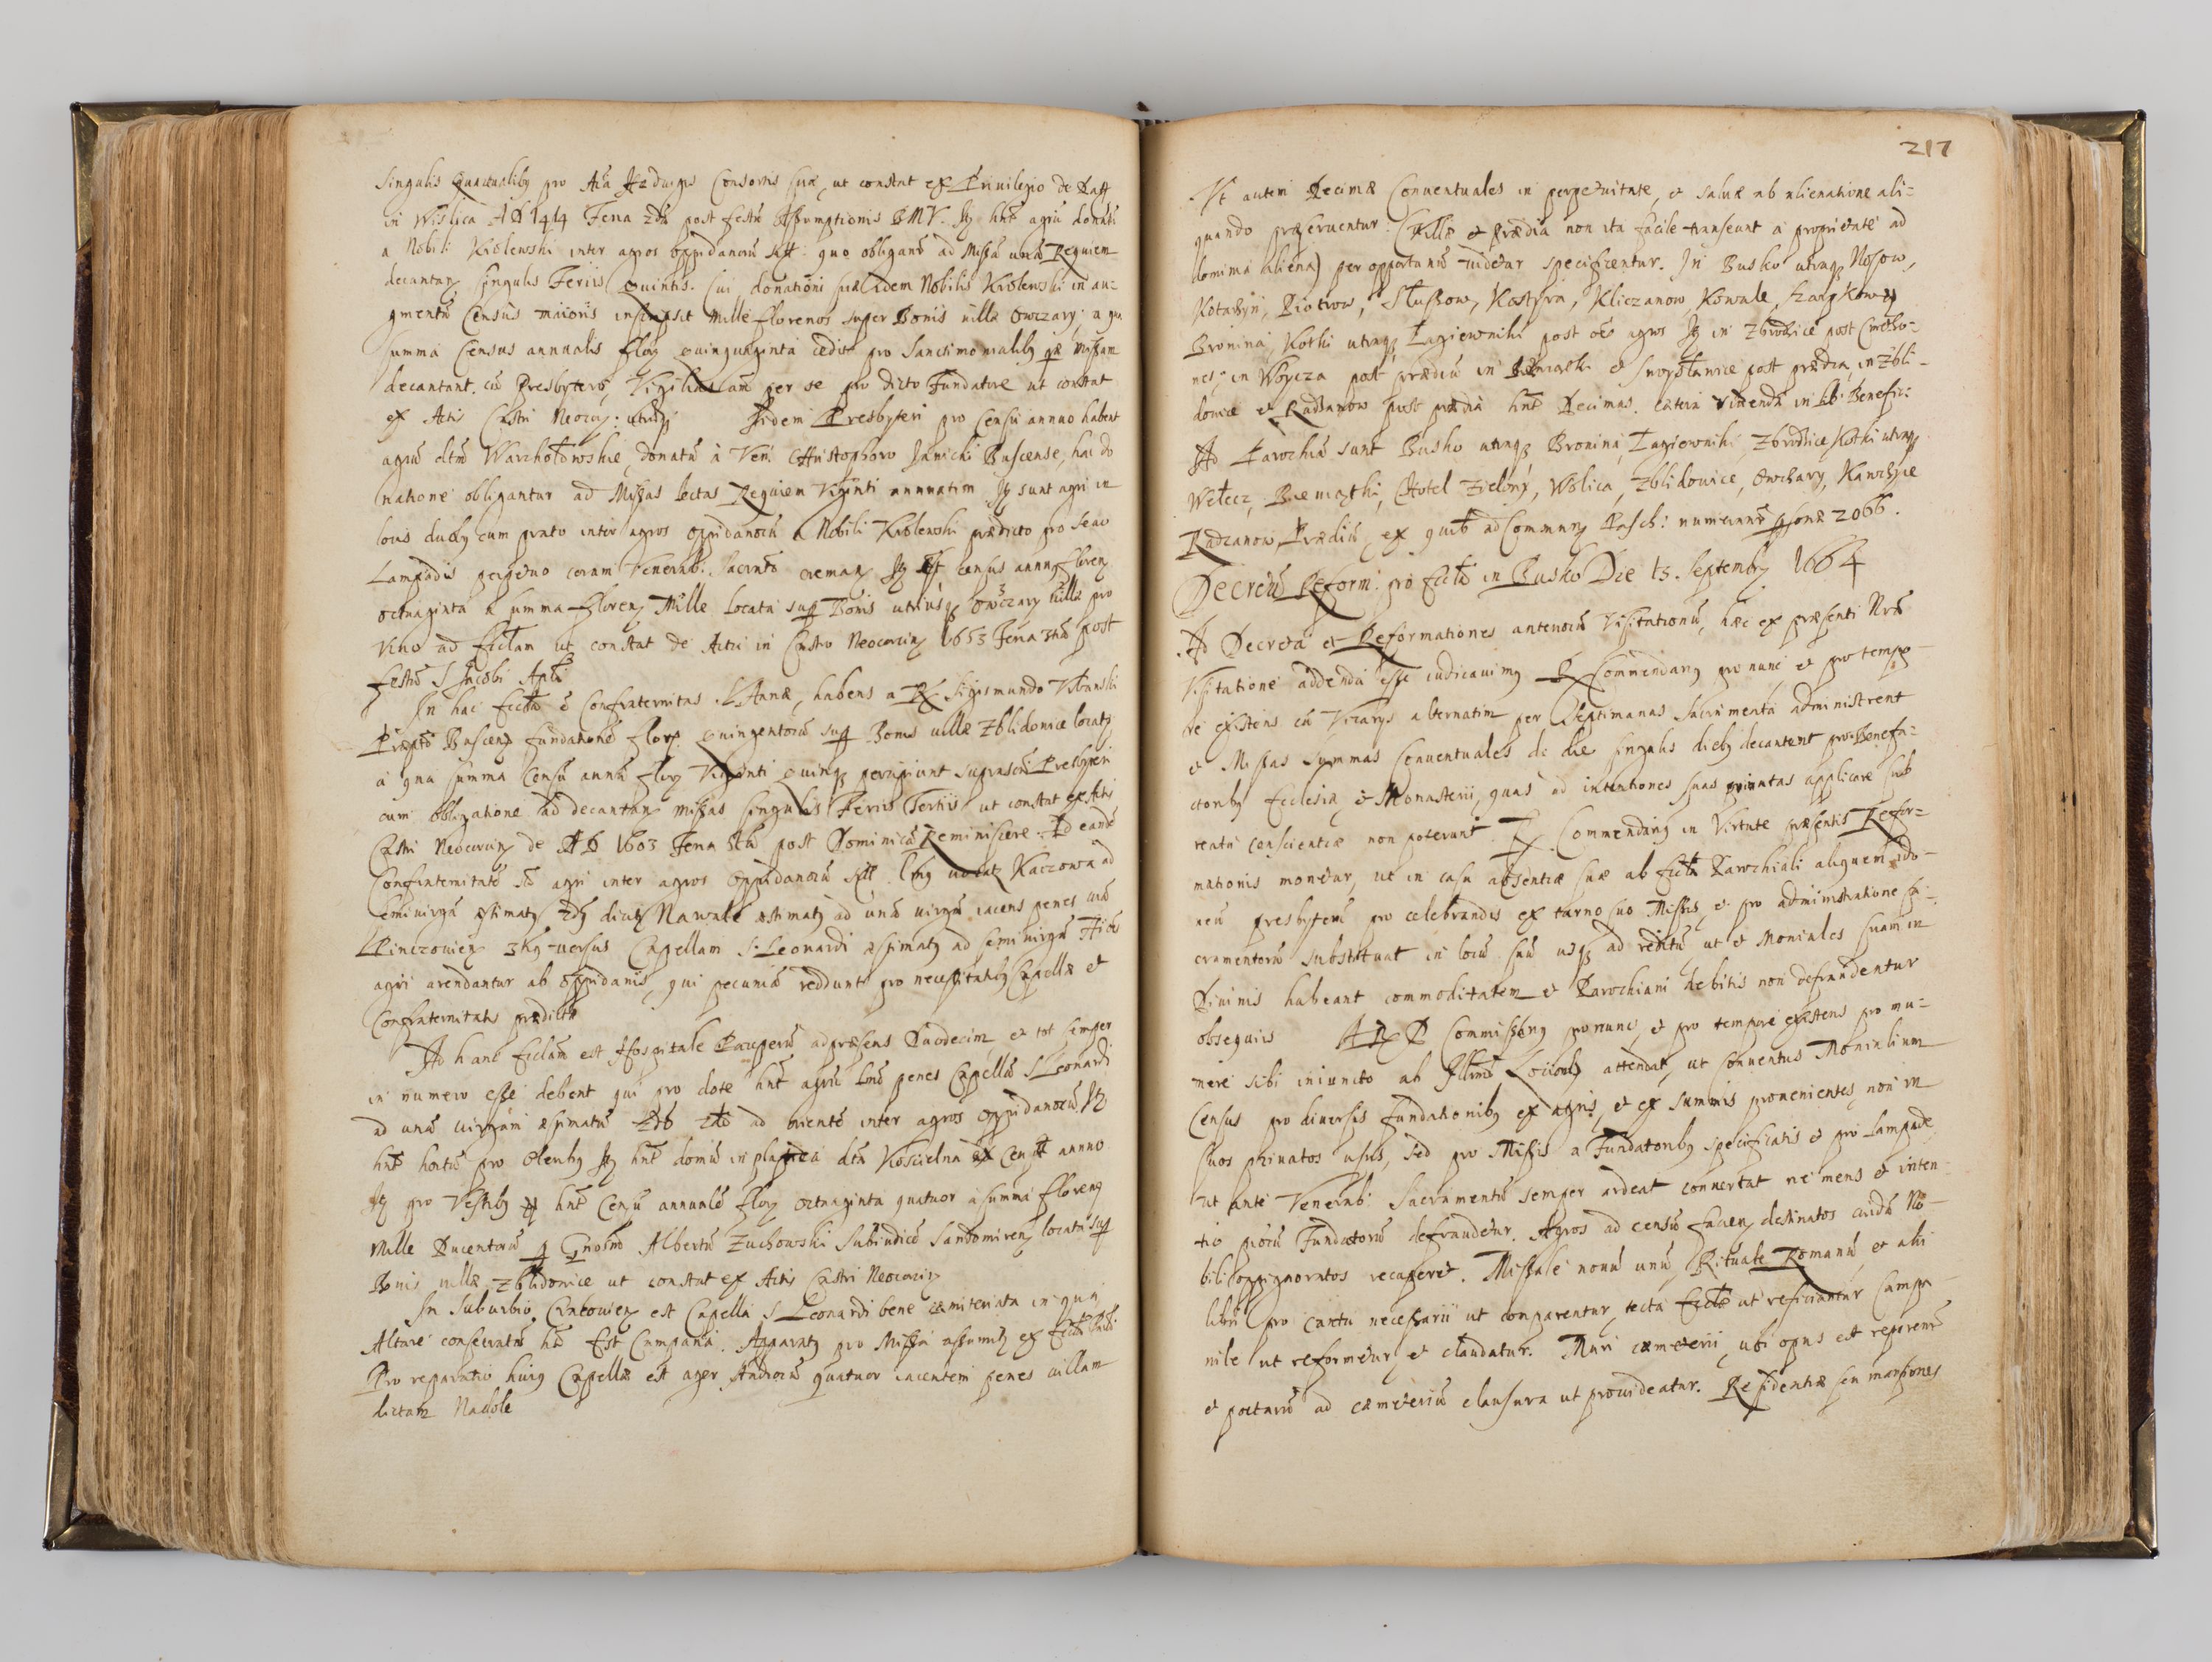 singulis quartualibꝫ pro Aīa Hedwigis Consortis suæ, ut constat ex Privilegio de Daff
in Wislica A D 1414 Feria 2dā post festū Assumptionis B M V. Itꝫ hnt agrū donatū
a Nobili Krolewski inter agros oppidanorū satt: quo obligantʳ ad Missā unā Requiem
decantanꝫ singulis Feriis quintis. Cui donationi suæ idem Nobilis Krolewski in au-
gmentū Census maioris inscripsit mille florenos super Bonis villæ Owczary; a qua
summa Census annualis floꝫ quinquaginta cedit pro Sanctimonialibꝫ quæ Missam
decantant. cū Presbytero, Vigilias etiam per se pro dicto Fundatore ut constat
ex Actis Castri Neociꝫ: Iidem Presbyteri pro Censu annuo habent
agrū dictū Warchołowskie, donatū à Ven: Christophoro Janicki Buscense, hac do
natione obligantur ad Missas lectas Requiem Viginti annuatim Itꝫ sunt agri in
locis duobꝫ cum prato inter agros oppidanorū a Nobili Krolewski prædicto pro seuo
Lampadis perpetuo coram Venerab: Sacramto cremanꝫ Itꝫ est census annuꝫ florenꝫ
octuaginta a summa florenꝫ Mille locata sup Bonis utriusqꝫ Owczary villæ pro
Vino ad Ecclam ut constat de Actis in Castro Neocorcinꝫ 1653 Feria 3tiā post
festū S Jacobi Apli
In hac Eccla ē Confraternitas S. Annæ, habens a R Sigismundo Vstanski
Præpto Buscenꝫ fundationē florꝫ quingentorū sup Bonis villæ Zblidowice locatꝫ
a qua summa Censū annū florꝫ Viginti quinqꝫ percipiunt suprascti Presbyteri
cum obligatione ad decantanꝫ missas singulis Feriis Tertiis ut constat ex Actis
Castri Neocorcinꝫ de A D 1603 Feria 5tā post Dominicā Reminiscere. Ad eandē
Confraternitatē st agri inter agros oppidanorū satt. 1mꝫ vocatꝫ Kaczowa ad
semivirgā æstimatꝫ 2dꝫ dictꝫ Nawale æstimatꝫ ad unā virgam iacens penes viā
Pinczovienꝫ 3tiꝫ versus Capellam S: Leonardi æstimatꝫ ad semivirgā Hice
agri arendantur ab oppidanis, qui pecuniā reddunt pro necessitatibꝫ Capellæ et
Confraternitatis prædictæ
Ad hanc Ecclam est Hospitale Pauperū ad præsens Duodecim, et tot semper
in numero esse debent qui pro dote hnt agrū 1mū penes Capellā S Leonardi
ad unā virgam æstimatū 2dū ad orientē inter agros oppidanorū Itꝫ
hnt hortū pro oleribꝫ Itꝫ hnt domū in platea dcta Kościelna
Itꝫ pro Vestibꝫ hnt Censū annualē floꝫ octuaginta quatuor a summa florenꝫ
Mille Ducentorū p Gnosm̄ Albertū Zuchowski Subiudicē Sandomirenꝫ locata sup
Bonis villæ Zblidowice ut constat ex Actis Castri Neocorcinꝫ
In Suburbio Cracovienꝫ est Capella S Leonardi bene cæmiteriata in qua
Altare consecratū hēt Est Campana. Apparatꝫ pro Missa assumitꝫ ex
Pro reparatio huiꝫ Capellæ est ager studiorū quatuor iacentem penes villam
dictam Nadole
217
Ut autem Decimæ Conventuales in perpetuitate, et salvæ ab alienatione ali-
quando præserventur: (Villæ et Prædia non ita facile transeunt à proprietate ad
domina aliena) per opportunū videtur specificentur. In Busko utraqꝫ Nosow,
Kotarbyń, Piotrow, Słuszow, Kostyra, Kliczanow, Kowale, Szarpkow
Bronina, Kotki utraqꝫ Łagiewniki post oēs agros Itꝫ in Zbrodzice post Cmetho-
nes; in Woycza post prædiū in Biemiątki et Swoysławice post prædia, in Zbli-
dowice et Radzanow post prædia hnt Decimas. Cætera videnda in Lib: Benefic:
Ad Parochiā sunt Busko utraqꝫ Bronina, Łagiewniki, Zbrodzice Kotki utraqꝫ
Wełecz, Biemiątki, Chotel Zielony, Wolica, Zblidowice, Owczary, Kawczyce
Radzanow, Prædiū, ex quibꝫ ad Communꝫ Pasch: numerantʳ psonæ 2066.
Decretū Reform: pro Eccla in Busko Die 13. Septembꝫ 1664
Ad Decreta et Reformationes anteriorū Visitationū, hæc ex præsenti Nra
Visitatione addenda esse iudicavimꝫ R Commendarꝫ pro nunc, et pro tempo-
re existens cū Vicarijs alternatim per Septimanas Sacramenta administrent
et Missas Summas Conventuales de die singulis diebꝫ decantent pro Benefa-
ctoribꝫ Ecclesiæ et Monasterii, quas ad intentiones suas privatas applicare sub
reatu conscientiæ non poterunt. R Commendariꝫ in Virtute præsentis Refor-
mationis monetur, ut in casu absentiæ suæ ab Eccla Parochiali aliquem ido-
neū presbyterū pro celebrandis ex turno suo Missis, et pro administratione sa-
cramentorū substituat in locū suū usqꝫ ad reditū ut et Moniales suam in
Divinis habeant commoditatem et Parochiani debitis non defraudentur
obsequiis A R D Commissarꝫ pro nunc, et pro tempore existens pro mu-
nere sibi iniuncto ab Illmo Loci Ordꝫ attendat, ut Conventus Monialium
Census pro diversis fundationibꝫ ex agris, et ex summis provenientes, non in
suos privatos usus, sed pro Missis a Fundatoribꝫ specificatis et pro Lampade,
ut ante Venerab: Sacramentū semper ardeat convertat ne mens et inten-
tio piorū Fundatorū defraudetur. Agros ad censū facien destinatos cuidā No-
bili oppignoratos recuperet. Missale novū unū, Rituale Romanū, et alii
libri pro cantu necessarii ut comparentur, tecta Ecclæ ut reficiantur Campa-
nile ut reformetur, et claudatur. Muri cæmeterii, ubi opus est reparentʳ
et portarū ad cæmeteriū clausura ut provideatur. Residentiæ seu mansiones